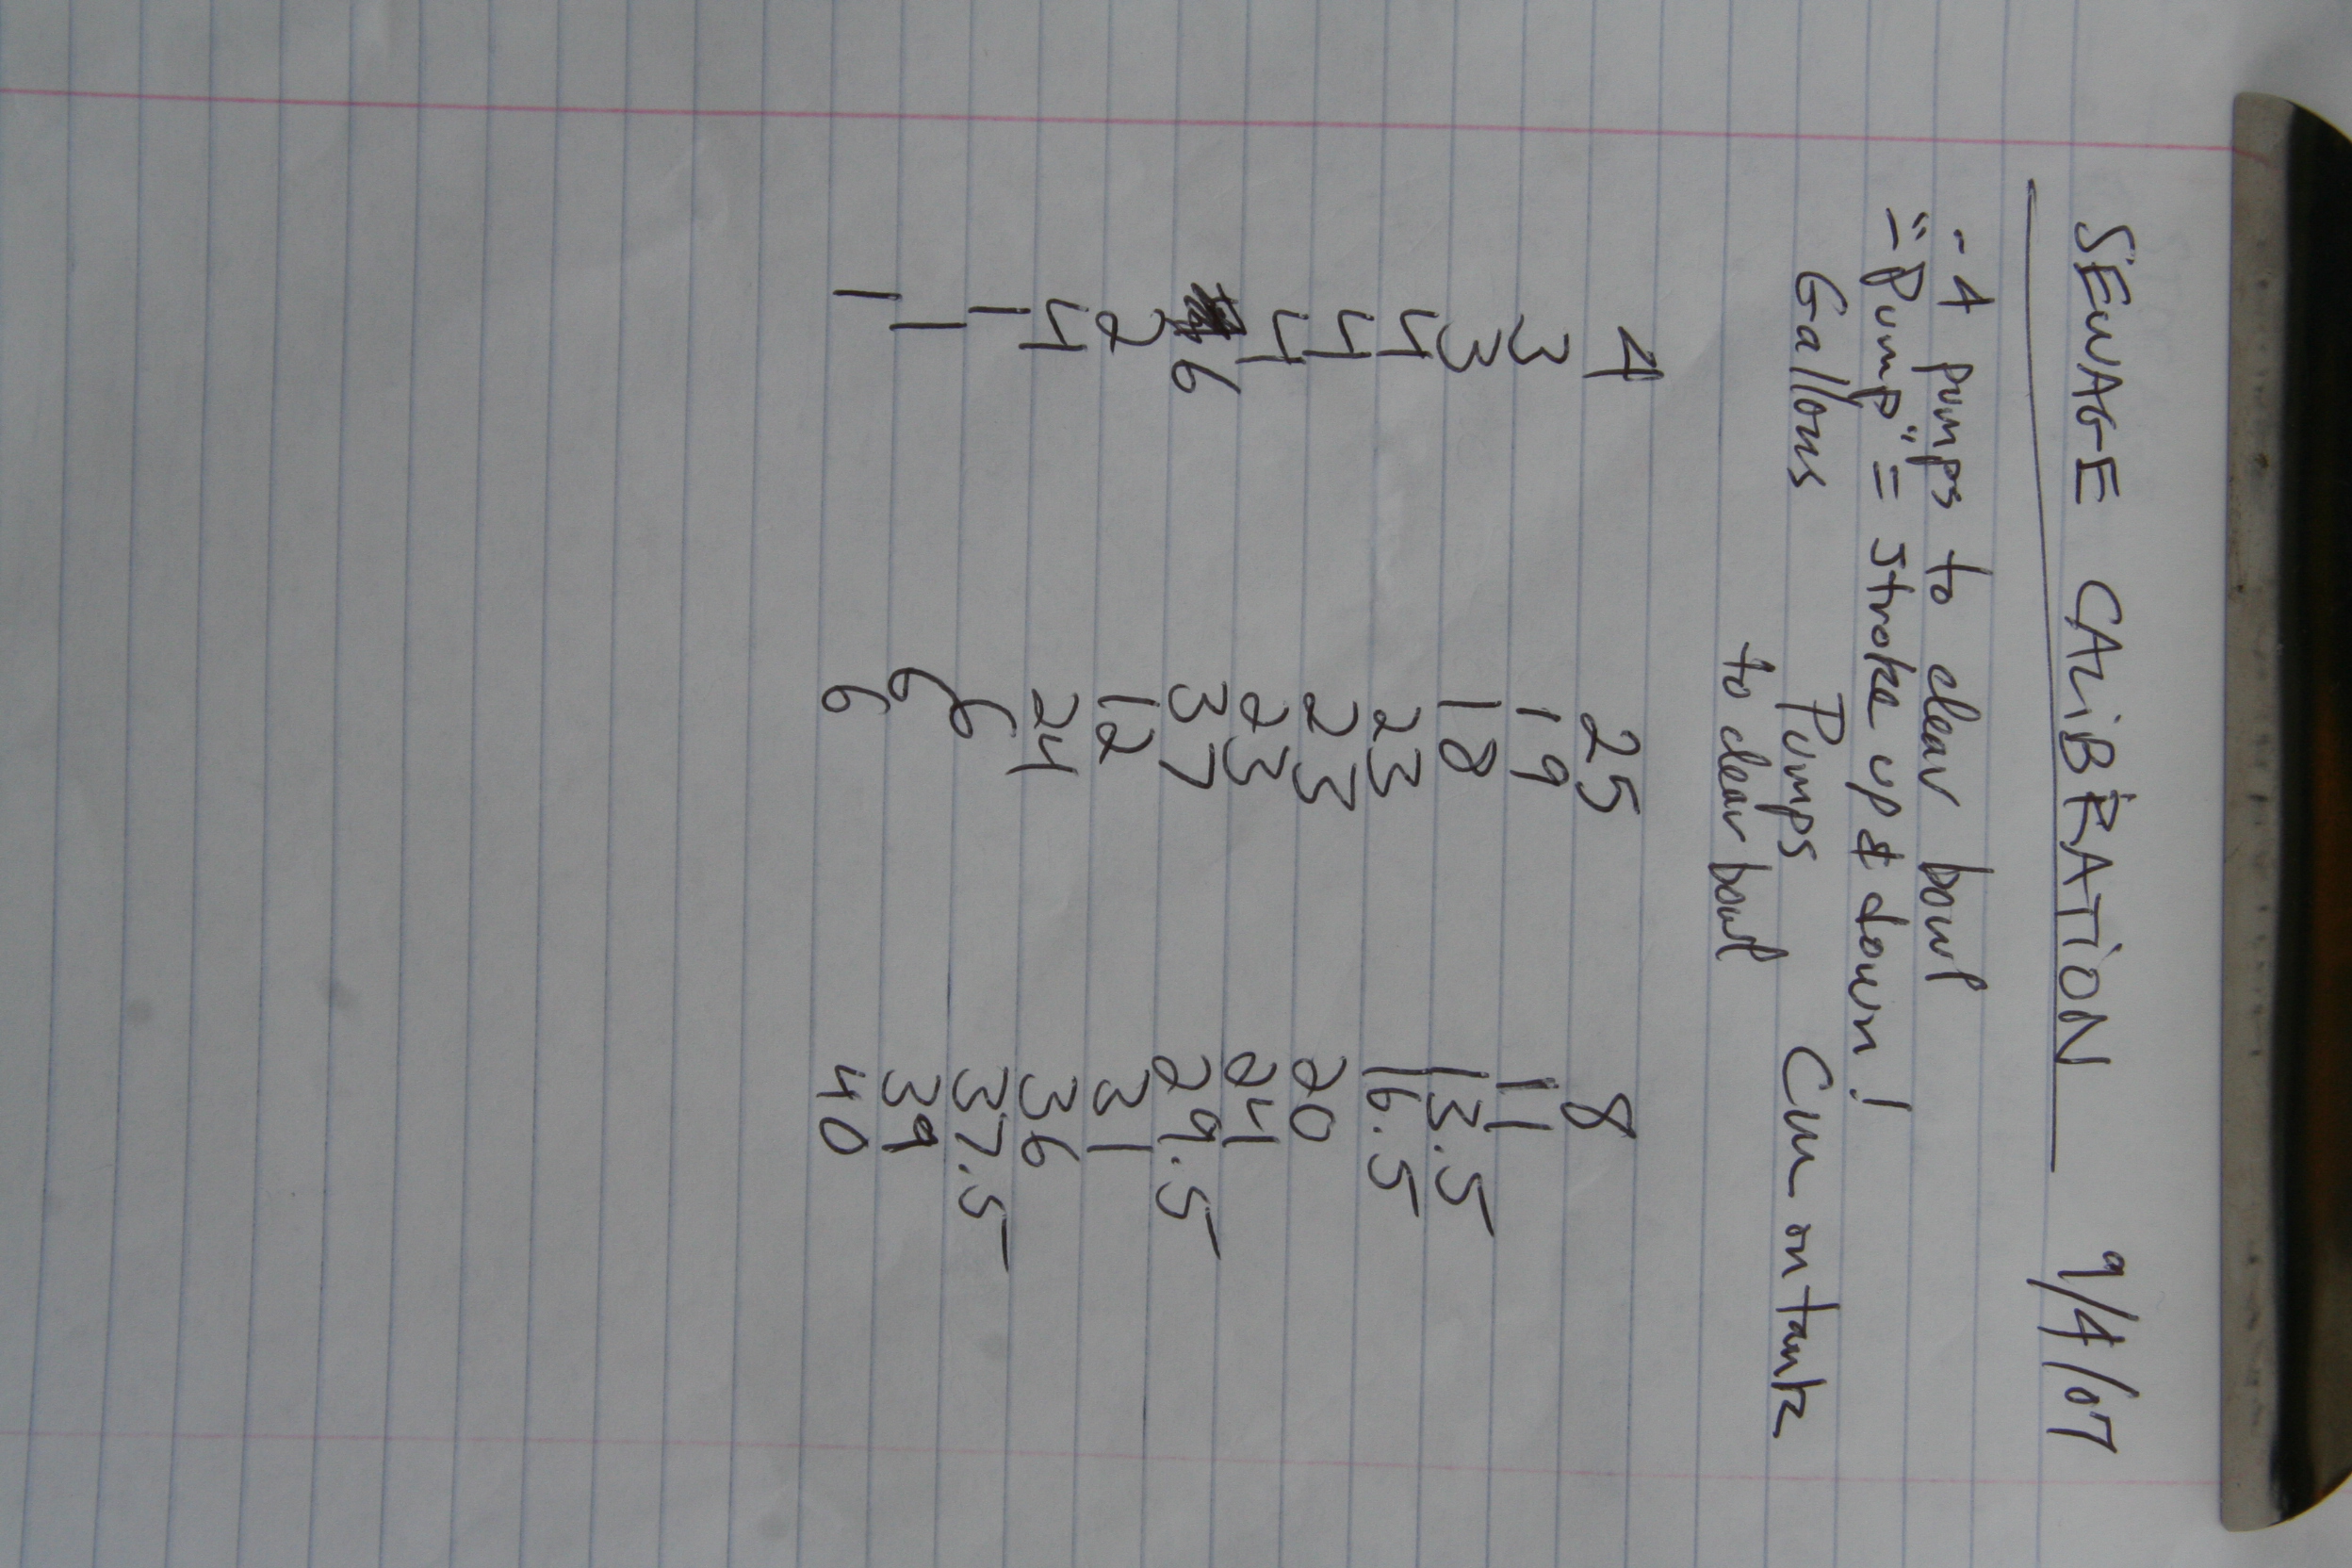 SEWAGE CALiBRATiON 9/4/07
- 4 pumps to clear bowl
- "Pump" = stroke up & down!
Gallons Pumps Cm on tank
to clear bowl
4 25 8
3 19 11
3 18 13.5
4 23 16.5
4 23 20
4 23 24
6 37 29.5
2 12 31
4 24 36
1 6 37.5
1 6 39
1 6 40